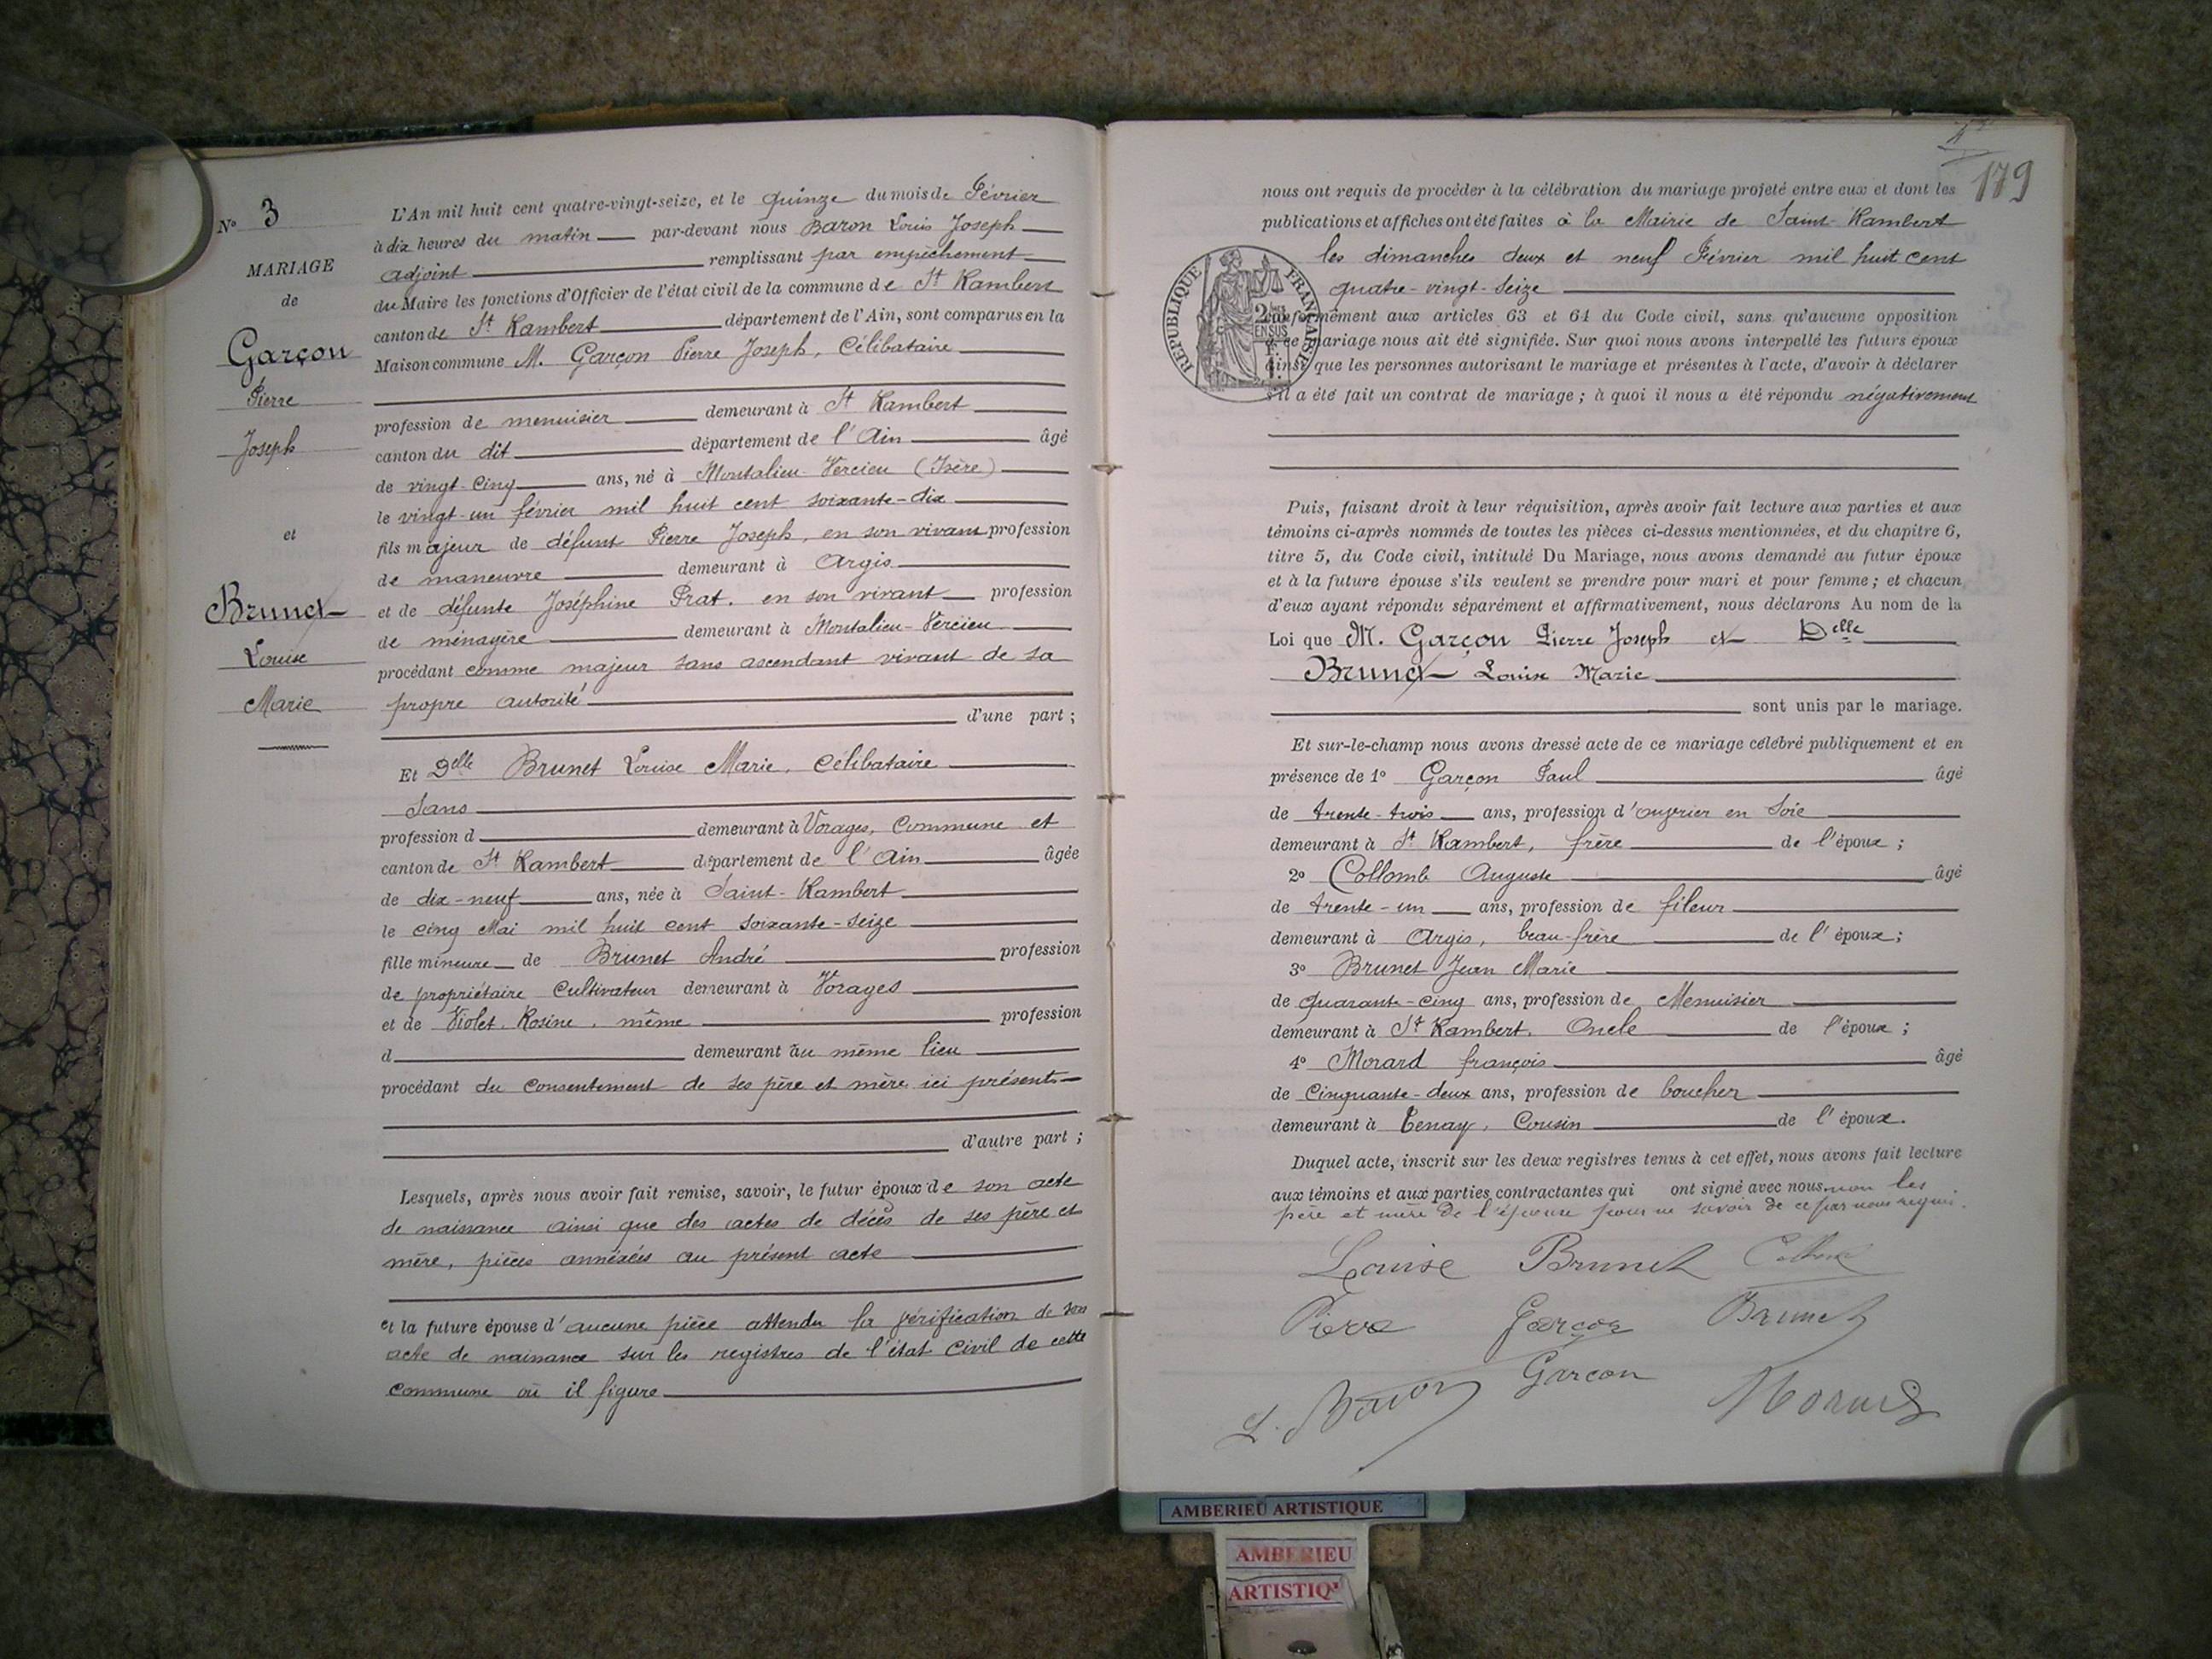 N° 3
MARIAGE
de
Garçon
Pierre
Joseph
et
Brunet
Louise
Marie
L'An mil huit cent quatre-vingt-seize, et le quinze du mois de Février
à dix heures du matin par-devant nous Baron Louis Joseph
adjoint remplissant par empêchement
du Maire les fonctions d'Officier de l'état civil de la commune de St Rambert
canton de St Rambert département de l'Ain, sont comparus en la
Maison commune M. Garçon Pierre Joseph, Célibataire
profession de menuisier demeurant à St Rambert
canton du dit département de l'Ain âgé
de vingt-cinq ans, né à Montalieu-Vercieu (Isère)
le vingt-un février mil huit cent soixante-dix
fils majeur de défunt Pierre Joseph, en son vivant profession
de maneuvre demeurant à Argis
et de défunte Joséphine Prat. en son vivant profession
de ménagère demeurant à Montalieu-Vercieu
procédant comme majeur sans ascendant vivant de sa
propre autorité
d'une part ;
Et Delle Brunet Louise Marie, Célibataire
Sans
profession d demeurant à Vorages, Commune et
canton de St Rambert département de l'Ain âgée
de dix-neuf ans, née à Saint-Rambert
le cinq Mai mil huit cent soixante-seize
fille mineure de Brunet André profession
de propriétaire Cultivateur demeurant à Vorages
et de Violet Rosine, même profession
d demeurant au même lieu
procédant du consentement de ses père et mère ici présents
d'autre part ;
Lesquels, après nous avoir fait remise, savoir, le futur époux de son acte
de naissance ainsi que des actes de décès de ses père et
mère, pièces annéxées au présent acte
et la future épouse d'aucune pièce attendu la vérification de son
acte de naissance sur les registres de l'état civil de cette
commune où il figure
179
nous ont requis de procéder à la célébration du mariage projeté entre eux et dont les
publications et affiches ont été faites à la Mairie de Saint-Rambert
les dimanches deux et neuf Février mil huit cent
quatre-vingt-seize
RÉPUBLIQUE FRANÇAISE
conformément aux articles 63 et 64 du Code civil, sans qu'aucune opposition
à ce mariage nous ait été signifiée. Sur quoi nous avons interpellé les futurs époux
ainsi que les personnes autorisant le mariage et présentes à l'acte, d'avoir à déclarer
s'il a été fait un contrat de mariage ; à quoi il nous a été répondu négativement
Puis, faisant droit à leur réquisition, après avoir fait lecture aux parties et aux
témoins ci-après nommés de toutes les pièces ci-dessus mentionnées, et du chapitre 6,
titre 5, du Code civil, intitulé Du Mariage, nous avons demandé au futur époux
et à la future épouse s'ils veulent se prendre pour mari et pour femme ; et chacun
d'eux ayant répondu séparément et affirmativement, nous déclarons Au nom de la
Loi que M. Garçon Pierre Joseph et Delle
Brunet Louise Marie
sont unis par le mariage.
Et sur-le-champ nous avons dressé acte de ce mariage célébré publiquement et en
présence de 1° Garçon Paul âgé
de trente-trois ans, profession d'ouvrier en Soie
demeurant à St Rambert, frère de l'époux ;
2° Collomb Auguste âgé
de trente-un ans, profession de fileur
demeurant à Argis, beau-frère de l'époux ;
3° Brunet Jean Marie
de quarante-cinq ans, profession de Menuisier
demeurant à St Rambert. Oncle de l'épouse ;
4° Morard françois âgé
de cinquante-deux ans, profession de boucher
demeurant à Tenay, Cousin de l'épouse.
Duquel acte, inscrit sur les deux registres tenus à cet effet, nous avons fait lecture
aux témoins et aux parties contractantes qui ont signé avec nous, non les
père et mère de l'épouse pour ne savoir de ce par nous requis.
Louise Brunet Collomb
Pierre Garçon Brunet
Garcon
L. Baron Morard
AMBERIEU ARTISTIQUE
AMBERIEU
ARTISTIQ